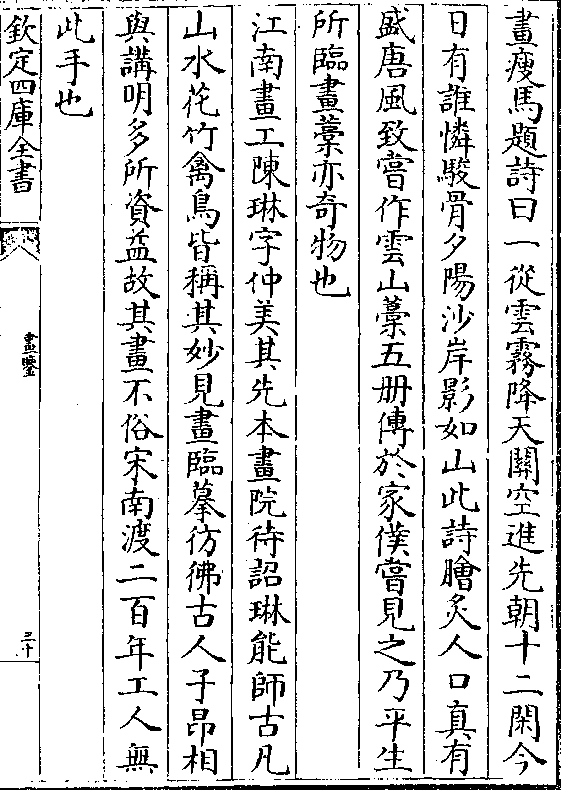 畫瘦馬題詩曰一從雲霧降天關空進先朝十二閑今
日有誰憐駿骨夕陽沙岸影如山此詩膾炙人口真有
盛唐風致嘗作雲山藁五册傳於家僕嘗見之乃平生
所臨畫藁亦奇物也
江南畫工陳琳字仲美其先本畫院待詔琳能師古凡
山水花竹禽鳥皆稱其妙見畫臨摹彷彿古人子昂相
與講明多所資益故其畫不俗宋南渡二百年工人無
此手也
欽定四庫全書
畫鑒
三十